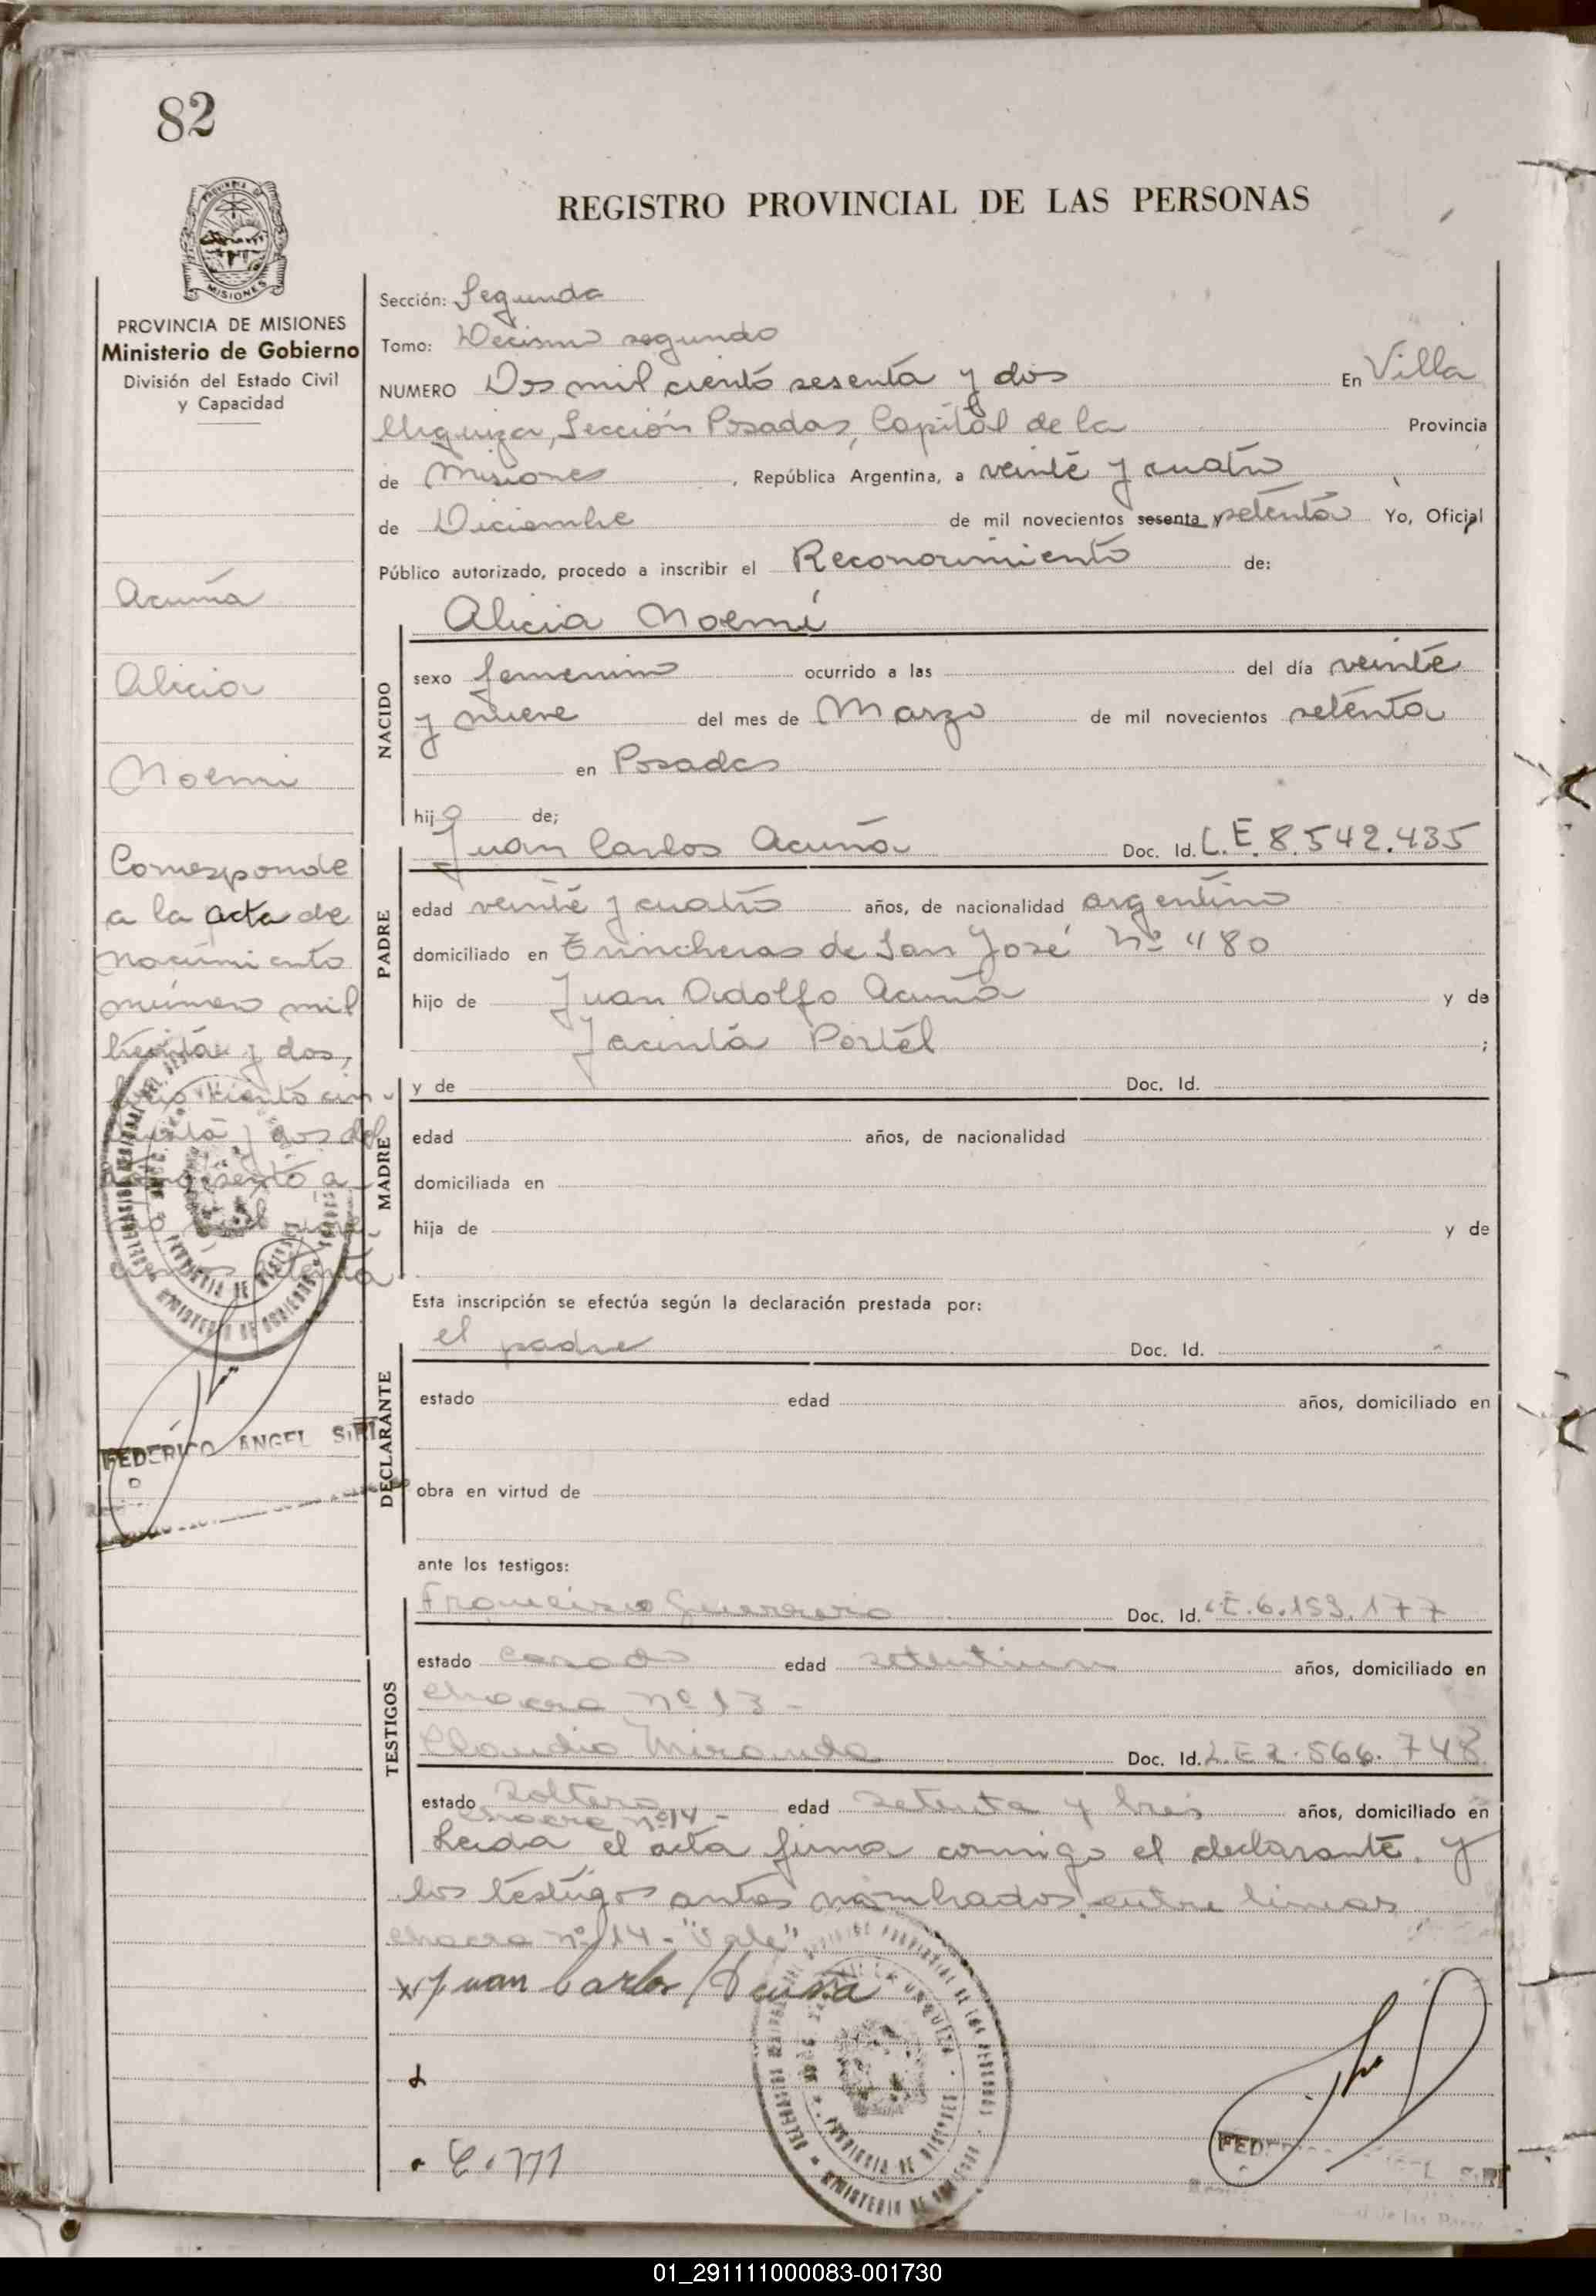 82
REGISTRO PROVINCIAL DE LAS PERSONAS
PROVINCIA DE MISIONES
Ministerio de Gobierno
División del Estado Civil
y Capacidad
Acuña
Alicia
Noemi
Corresponde
a la acta de
nacimiento
número mil
treinta y dos,
Sección: Segunda
Tomo: Decimo segundo
NUMERO Dos mil ciento sesenta y dos En Villa
Urquiza, Sección Posadas, Capital de la Provincia
de Misiones, República Argentina, a veinte y cuatro
de Diciembre de mil novecientos sesenta y setenta Yo, Oficial
Público autorizado, procedo a inscribir el Reconocimiento de:
Alicia Noemí
NACIDO
sexo femenino ocurrido a las del día veinte
y nueve del mes de Marzo de mil novecientos setenta
en Posadas
hija de;
PADRE
Juan Carlos Acuña Doc. Id. L.E. 8.542.435
edad veinte y cuatro años, de nacionalidad argentino
domiciliado en Trincheras de San José Nº 480
hijo de Juan Adolfo Acuña y de
Jacinta Portel ;
MADRE
y de Doc. Id.
edad años, de nacionalidad
domiciliada en
hija de y de
Esta inscripción se efectúa según la declaración prestada por:
DECLARANTE
el padre Doc. Id.
estado edad años, domiciliado en
obra en virtud de
FEDERICO ANGEL SIRI
ante los testigos:
TESTIGOS
Francisco Guerrero Doc. Id. L.E. 6.153.177
estado casado edad años, domiciliado en
chacra nº 13 -
Claudio Miranda Doc. Id. L.E 2.566.748
estado soltero edad setenta y tres años, domiciliado en
chacra nº14 -
Leida el acta firma conmigo el declarante y
los testigos antes nombrados. entre lineas
chacra nº 14 - "Vale"
x Juan Carlos Acuña
01_291111000083-001730